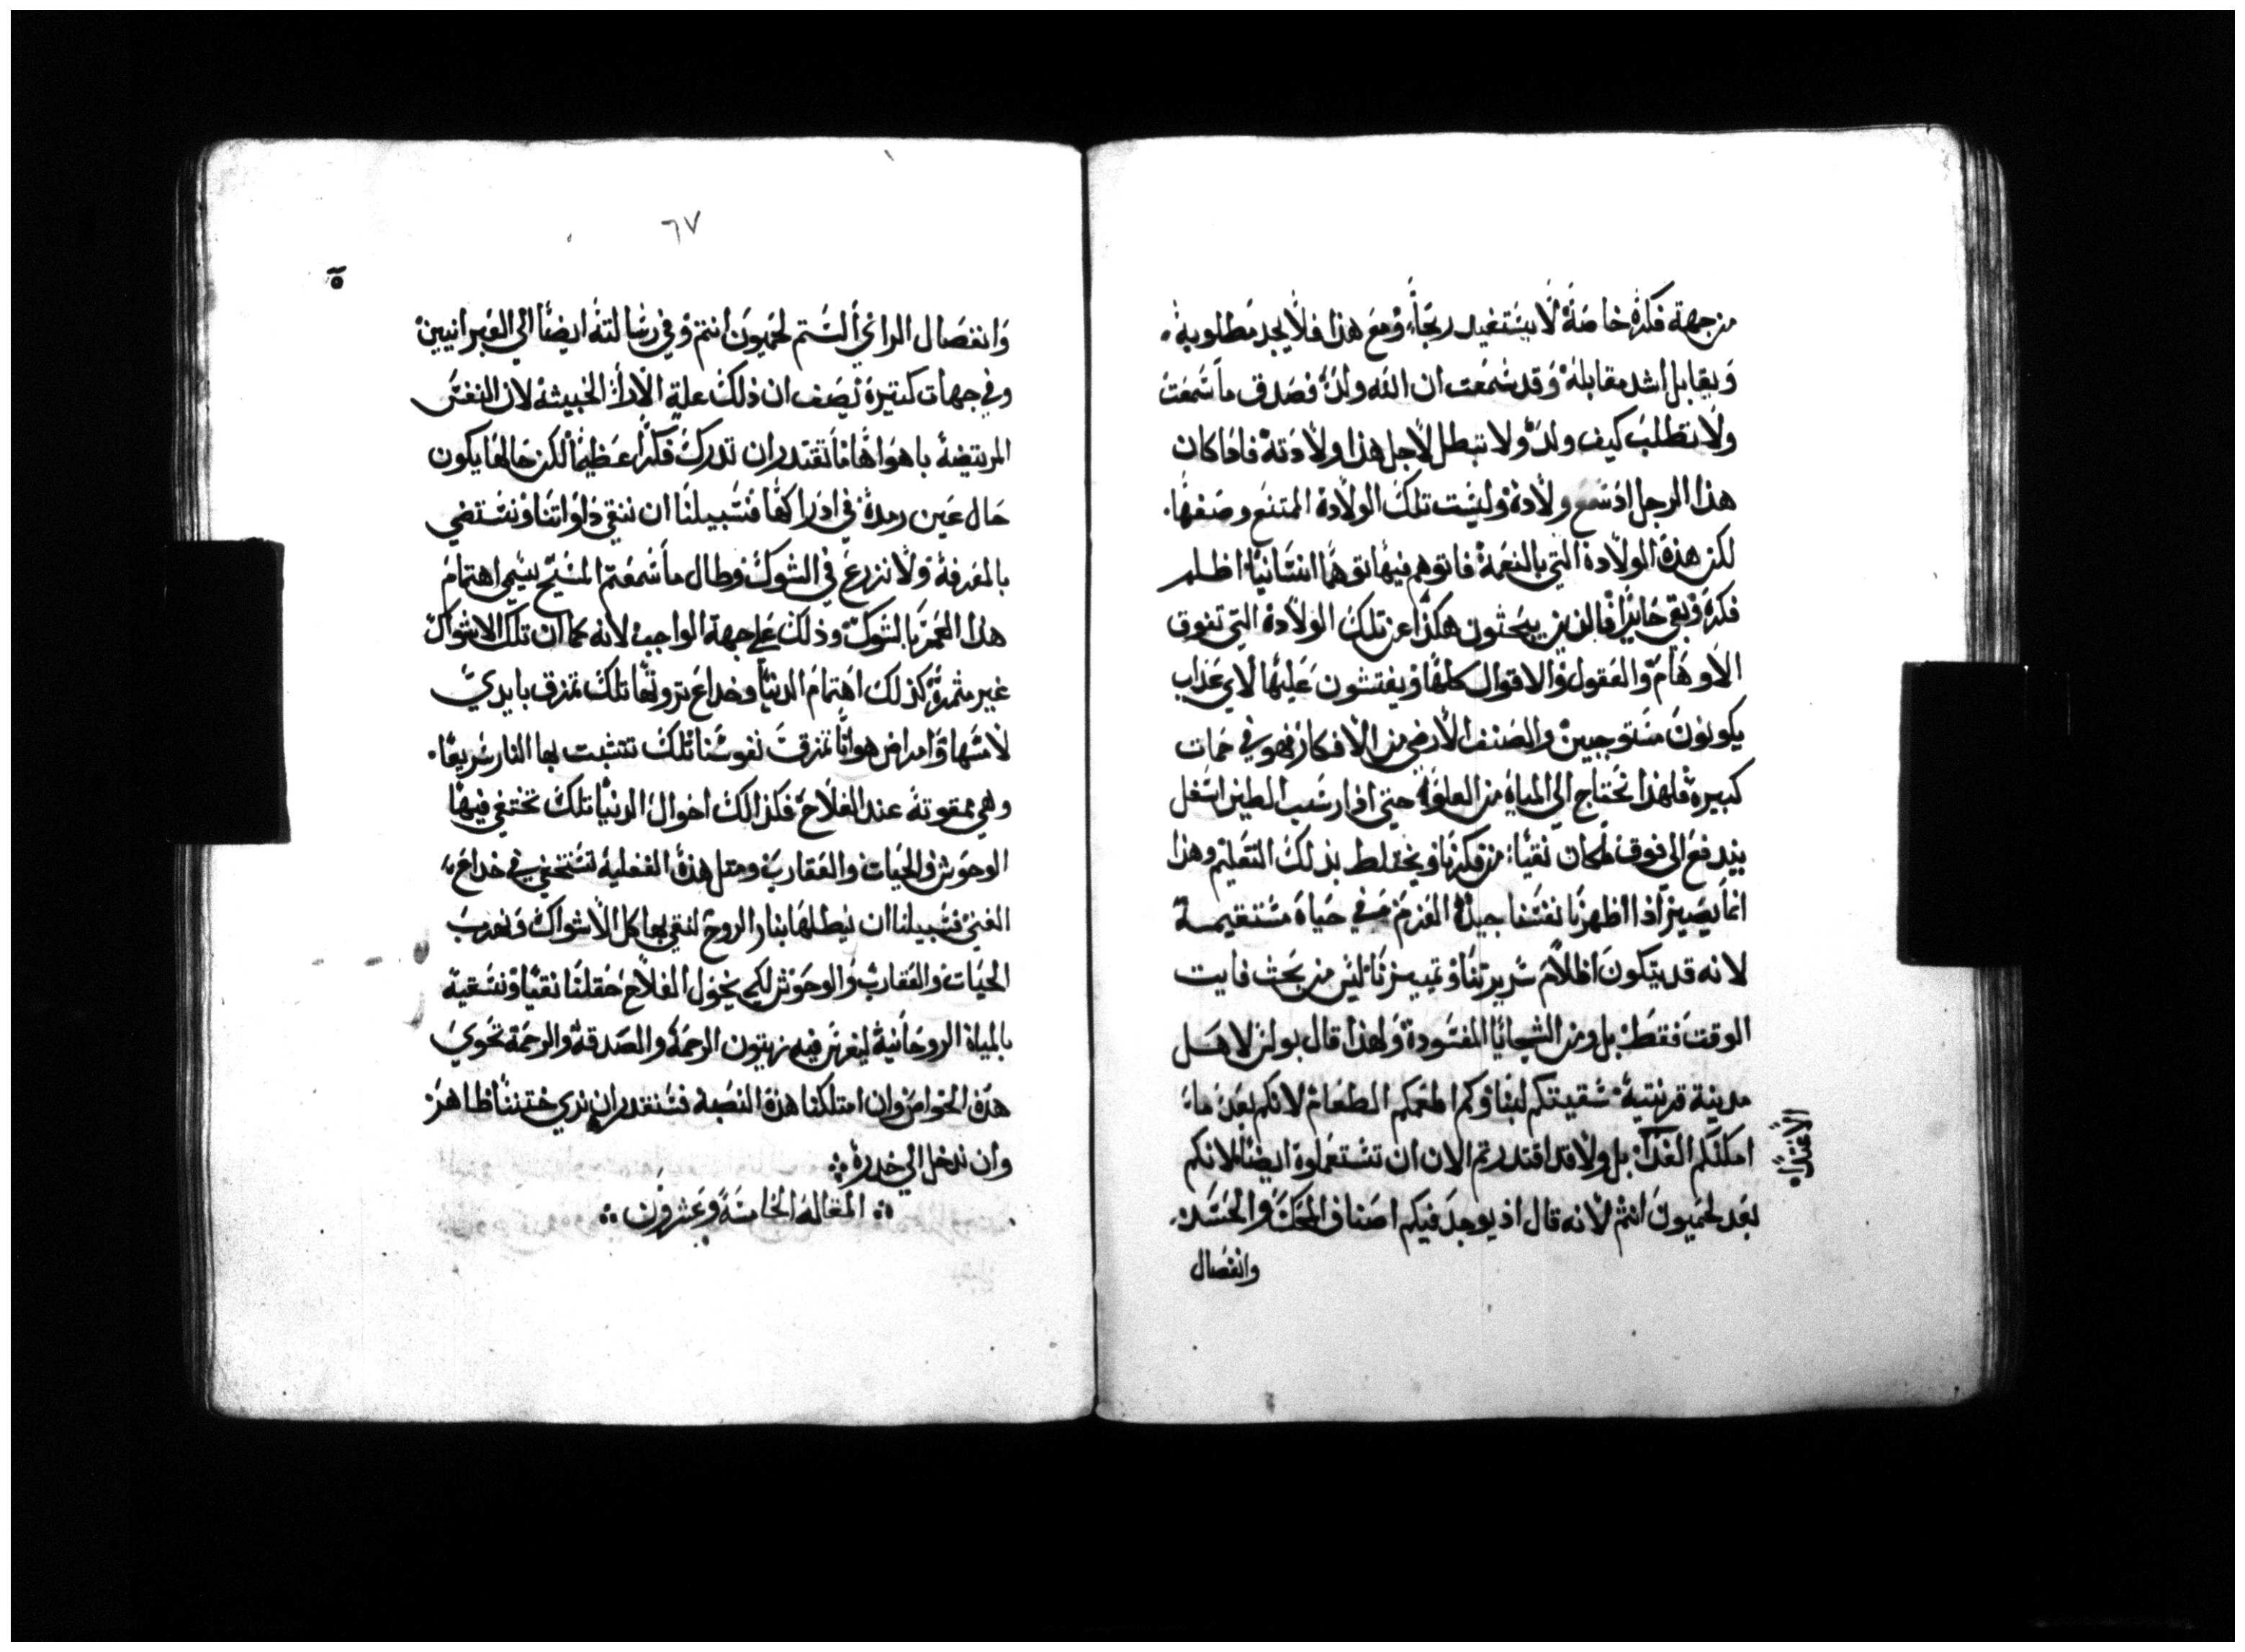 من جهة فكرة خاصة لا يستفيد ربحاً ومع هذا فلا يجد مطلوبه.
ويقابل اشد مقابله وقد سمعت ان الله ولد فصدق ما سمعت
ولا تطلب كيف ولد ولا تبطل لاجل هذا ولادته فاذا كان
هذا الرجل اذ سمع ولادة وليست تلك الولادة الممتنع وصفها.
لكن هذه الولادة التي بالنعمة فاتوهم فيها توهما انسانيا اظلم
فكره وبقي حايرا فالذين يبحثون هكذا عن تلك الولادة التي تفوق
الاوهام والعقول والاقوال كلها ويفتشون عليها لاي عذاب
يكونون مستوجبين والصنف الارضي من الافكار فهو في حمات
كبيرة فلهذا نحتاج الي المياه من العلو حتي اذا رسب الطين اسفل
يندفع الي فوق ما كان نقيا من فكرنا ويختلط بذلك التعليم وهذا
انما يصير اذا اظهرنا نفسنا جيدة العزم في حياة مستقيمة
لانه قد يتكون اظلام سريرتنا وتمييزنا ليس من بحث فايت
الوقت فقط بل ومن السجايا المفسودة ولهذا قال بولس لاهل
مدينة قرنتية سقيتكم لبنا وكم اطعمكم الطعام لانكم بعد ما
امكنكم الغدا بل ولا قد اقتدرتم الان ان تستعملوه ايضا لانكم
بعد لحميون انتم لانه قال اذ يوجد فيكم اصناف المحك والحسد
وانفصال
٦٧
وانفصال الراي ألستم لحميون انتم وفي رسالته ايضا الي العبرانيين
وفي جهات كتيرة يصف ان ذلك علة الاراء الخبيثه لان النفس
المرتضية باهواها ما تقتدر ان تدرك فكرا عظيما لكن حالها يكون
حال عين رمدة في ادراكها فسبيلنا ان ننقي ذاواتنا ونستضي
بالمعرفة ولا نزرع في الشوك وطال ما سمعتم المسيح يسمي اهتمام
هذا العمر بالشوك وذلك علي جهة الواجب لانه كما ان تلك الاشواك
غير مثمرة كذلك اهتمام الدنيا وخداع ثروتها تلك تمزق بايدي
لامسها وامراض هوانا تمزق نفوسنا تلك تتشبت بها النار سريعا.
وهي ممقوته عند الفلاح فكذالك احوال الدنيا تلك تختفي فيها
الوحوش والحيات والعقارب ومتل هذه الفعلية تستخفي في خداع
الغني فسبيلنا ان نبطلها بنار الروح لنقي بها كل الاشواك ونهرب
الحيات والعقارب والوحوش لكي يخول الفلاح حقلنا نقيا ونسقيه
بالمياه الروحانية ليغرس فيه زيتون الرحمة والصدقة والرحمة تحوي
هذه الخواص وان امتلكنا هذه النصبه فسنقدر ان نري ختننا ظاهر
وان ندخل الي خدره
المقاله الخامسة وعشرون